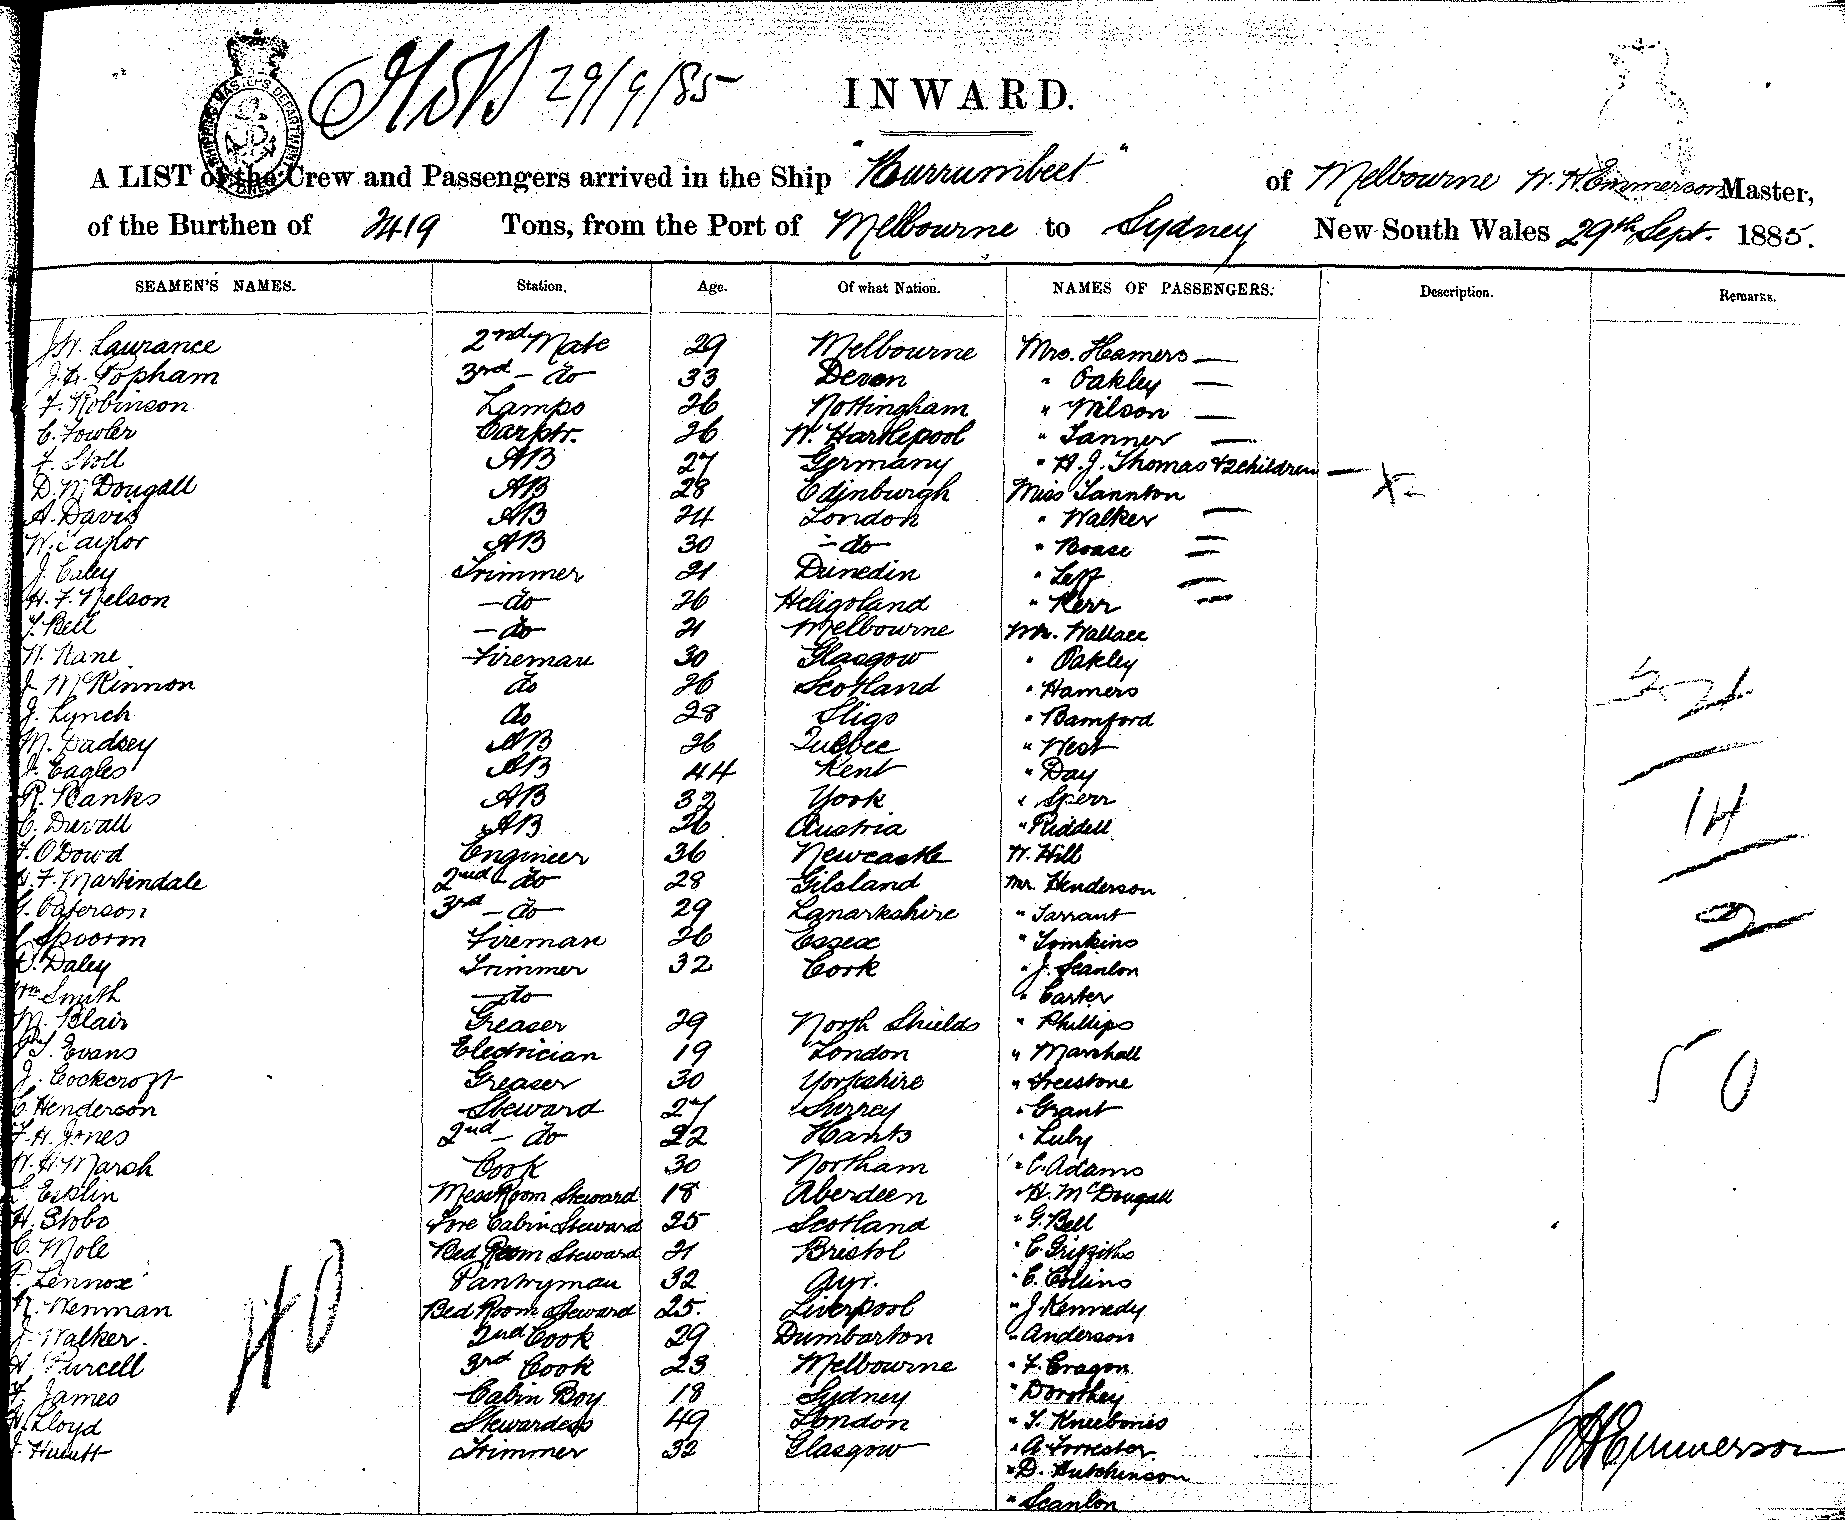 29/9/85
INWARD.
A LIST of the Crew and Passengers arrived in the Ship "Burrumbeet" of Melbourne W. H. Emmerson Master,
of the Burthen of 2419 Tons, from the Port of Melbourne to Sydney New South Wales 29th Sept. 1885.
SEAMEN'S NAMES. Station. Age. Of what Nation. NAMES OF PASSENGERS. Description. Remarks.
J.W. Laurance 2nd Mate 29 Melbourne Mrs. Hamers —
J.H. Popham 3rd - do 33 Devon " Oakley —
F. Robinson Lamps 26 Nottingham " Wilson —
C. Fowler Carptr. 26 W. Hartlepool " Tanner —
F. Stoll AB 27 Germany " H.J. Thomas & 2 children —
D. McDougall AB 28 Edinburgh Miss Tannton
A. Davis AB 24 London " Walker —
W. Taylor AB 30 - do " Boase
J. Caley Trimmer 21 Dunedin " Leff
H. F. Nelson - do 26 Heligoland " Kerr
Bell - do 21 Melbourne Mr. Wallace
Kane Fireman 30 Glasgow " Oakley
J McKinnon do 26 Scotland " Hamers
J. Lynch do 28 Sligo " Bamford
M. Dadsey AB 26 Quebec " West
J. Eagles AB 44 Kent " Day
R. Banks AB 32 York " Sperr
C. Duvall AB 26 Austria " Riddell
F. O'Dowd Engineer 36 Newcastle W. Hill 14
H. F. Martindale 2nd - do 28 Gilsland Mr. Henderson
G. Paterson 3rd - do 29 Lanarkshire " Tarrant 2
Spoorm Fireman 26 Essex " Tomkins
D. Daley Trimmer 32 Cork " J. Scanlon
Wm Smith - do " Carter
M. Blair Greaser 29 North Shields " Phillips
Evans Electrician 19 London " Marshall
J. Cockcroft Greaser 30 Yorkshire " Freestone 50
C. Henderson Steward 27 Surrey " Grant
F. H. Jones 2nd - do 22 Hants " Luby
W. H. Marsh Cook 30 Northam " C. Adams
Esplin Mess Room Steward 18 Aberdeen " H. McDougall
H. Stobo Fore Cabin Steward 25 Scotland " G. Bell
C. Mole Bed Room Steward 21 Bristol " C. Griffiths
Lennox Pantryman 32 Ayr. " C. Collins
Wenman Bed Room Steward 25. Liverpool " J. Kennedy
J. Walker. 2nd Cook 29 Dumbarton " Anderson
Purcell 3rd Cook 23 Melbourne " F. Cragon
F. James Cabin Boy 18 Sydney " Dorothey
H. Lloyd Stewardess 49 London " T. Kneebones
Trimmer 32 Glasgow " A. Forrester
" D. Hutchinson
" Scanlon
40
W H Emmerson